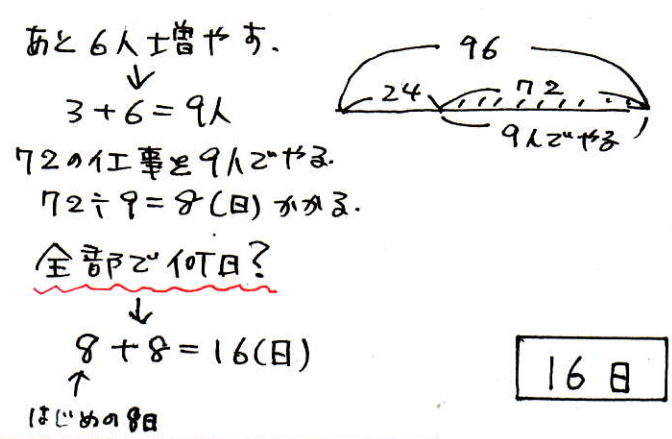 あと6人士増やす.
↓
3+6=9人
72の仕事を9人でやる.
72÷9=8(日)かかる.
全部で何日?
↓
8+8=16(日)
↑
はじめの8日
96
24
72
9人でやる
16日